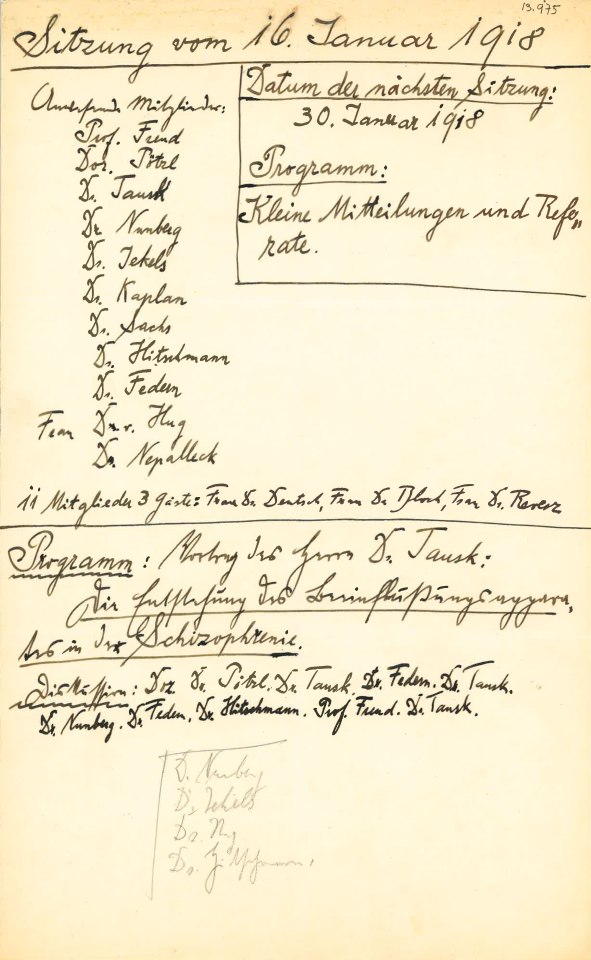 13.975
Sitzung vom 16. Januar 1918
Anwesende Mitglieder:
Prof. Freud
Doz. Pötzl
Dr. Tausk
Dr. Nunberg
Dr. Jekels
Dr. Kaplan
Dr. Sachs
Dr. Hitschmann
Dr. Federn
Frau Dr. v. Hug
Dr. Nepalleck
Datum der nächsten Sitzung:
30. Januar 1918
Programm:
Kleine Mitteilungen und Refe„
rate.
11 Mitglieder 3 Gäste: Frau Dr. Deutsch, Frau Dr. Bloch, Frau Dr. Revesz
Programm: Vortrag des Herrn Dr. Tausk:
Die Entstehung des Beeinflußungsappara„
tes in der Schizophrenie.
Diskussion: Doz. Dr. Pötzl. Dr. Tausk. Dr. Federn. Dr. Tausk.
Dr. Nunberg. Dr. Federn. Dr. Hitschmann. Prof. Freud. Dr. Tausk.
D. Nunberg
Dr. Jekels
Dr. Hug
Dr. Hitschmann.